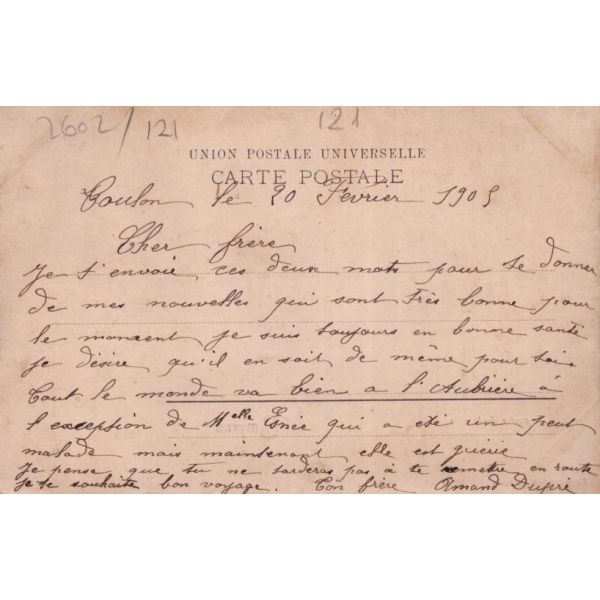 2602/121
121
UNION POSTALE UNIVERSELLE
CARTE POSTALE
Toulon le 20 Février 1905
Cher frère
Je t'envoie ces deux mots pour te donner
de mes nouvelles qui sont Très bonne pour
le moment je suis toujours en bonne santé
je désire qu'il en soit de même pour toi.
Tout le monde va bien a l'Aubrière à
l'exception de Melle Esnée qui a été un peut
malade mais maintenant elle est guérie
Je pense que tu ne tarderas pas à te remettre en route
je te souhaite bon voyage. Ton frère Amand Dupré